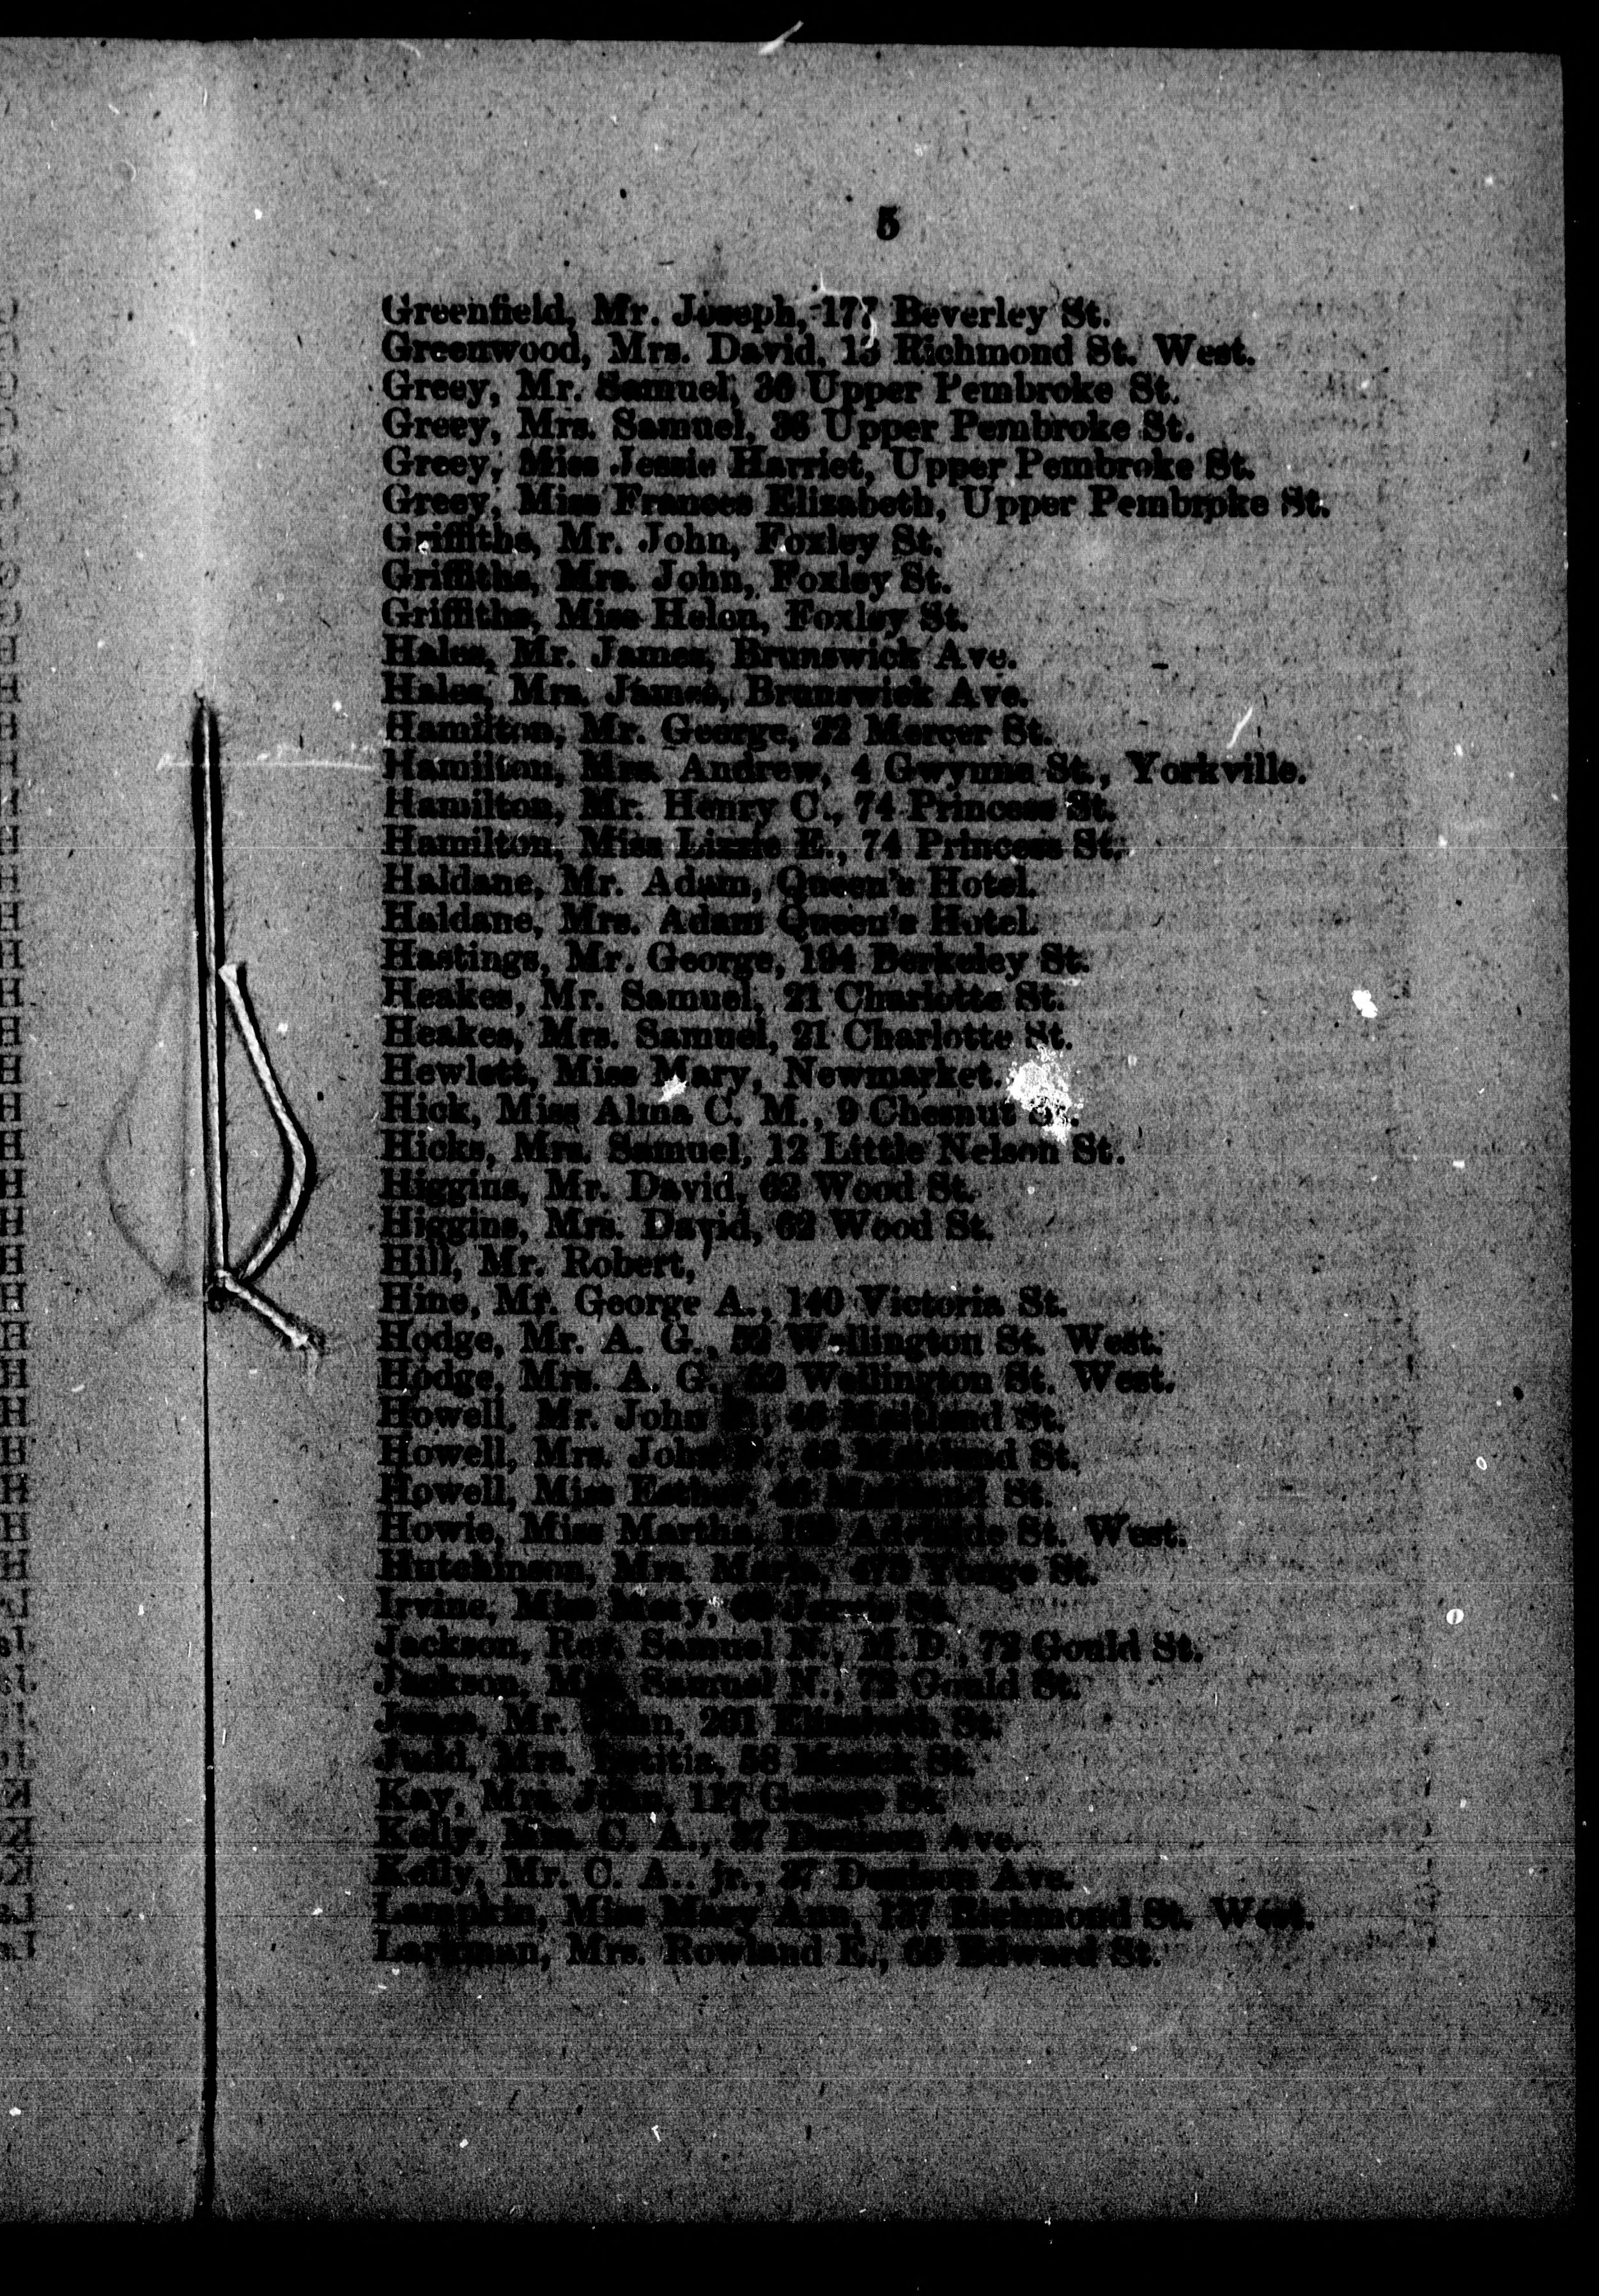 5
Greenfield, Mr. Joseph, 177 Beverley St.
Greenwood, Mrs. David, 13 Richmond St. West.
Greey, Mr. Samuel, 36 Upper Pembroke St.
Greey, Mrs. Samuel, 36 Upper Pembroke St.
Greey, Miss Jessie Harriet, Upper Pembroke St.
Greey, Miss Frances Elizabeth, Upper Pembroke St.
Griffiths, Mr. John, Foxley St.
Griffiths, Mrs. John, Foxley St.
Griffiths, Miss Helen, Foxley St.
Hales, Mr. James, Brunswick Ave.
Hales, Mrs. James, Brunswick Ave.
Hamilton, Mr. George, 22 Mercer St.
Hamilton, Mrs. Andrew, 4 Gwynne St., Yorkville.
Hamilton, Mr. Henry C., 74 Princess St.
Hamilton, Miss Lizzie E., 74 Princess St.
Haldane, Mr. Adam, Queen's Hotel.
Haldane, Mrs. Adam Queen's Hotel.
Hastings, Mr. George, 194 Berkeley St.
Heakes, Mr. Samuel, 21 Charlotte St.
Heakes, Mrs. Samuel, 21 Charlotte St.
Hewlett, Miss Mary, Newmarket.
Hick, Miss Alma C. M., 9 Chesnut St.
Hicks, Mrs. Samuel, 12 Little Nelson St.
Higgins, Mr. David, 62 Wood St.
Higgins, Mrs. David, 62 Wood St.
Hill, Mr. Robert,
Hine, Mr. George A., 140 Victoria St.
Hodge, Mr. A. G., 52 Wellington St. West.
Hodge, Mrs. A. G., 52 Wellington St. West.
Howell, Mr. John Maitland St.
Howell, Mrs. John Maitland St.
Howell, Miss Esther, Maitland St.
Howie, Miss Martha, Adelaide St. West.
Hutchinson, Mrs. Yonge St.
Irvine, Miss Mary, Jarvis St.
Jackson, Rev. Samuel N., M.D., 72 Gould St.
Jackson, Mrs. Samuel N., 72 Gould St.
Jones, Mr. John, 201 Elizabeth St.
Judd, Mrs. Letitia, 58 St.
Kay, Mrs. John, George St.
Kelly, Mrs. C. A., 37 Denison Ave.
Kelly, Mr. C. A., jr., 37 Denison Ave.
Lampkin, Miss Mary Ann, 137 Richmond St. West.
Larkman, Mrs. Rowland E., 65 Edward St.